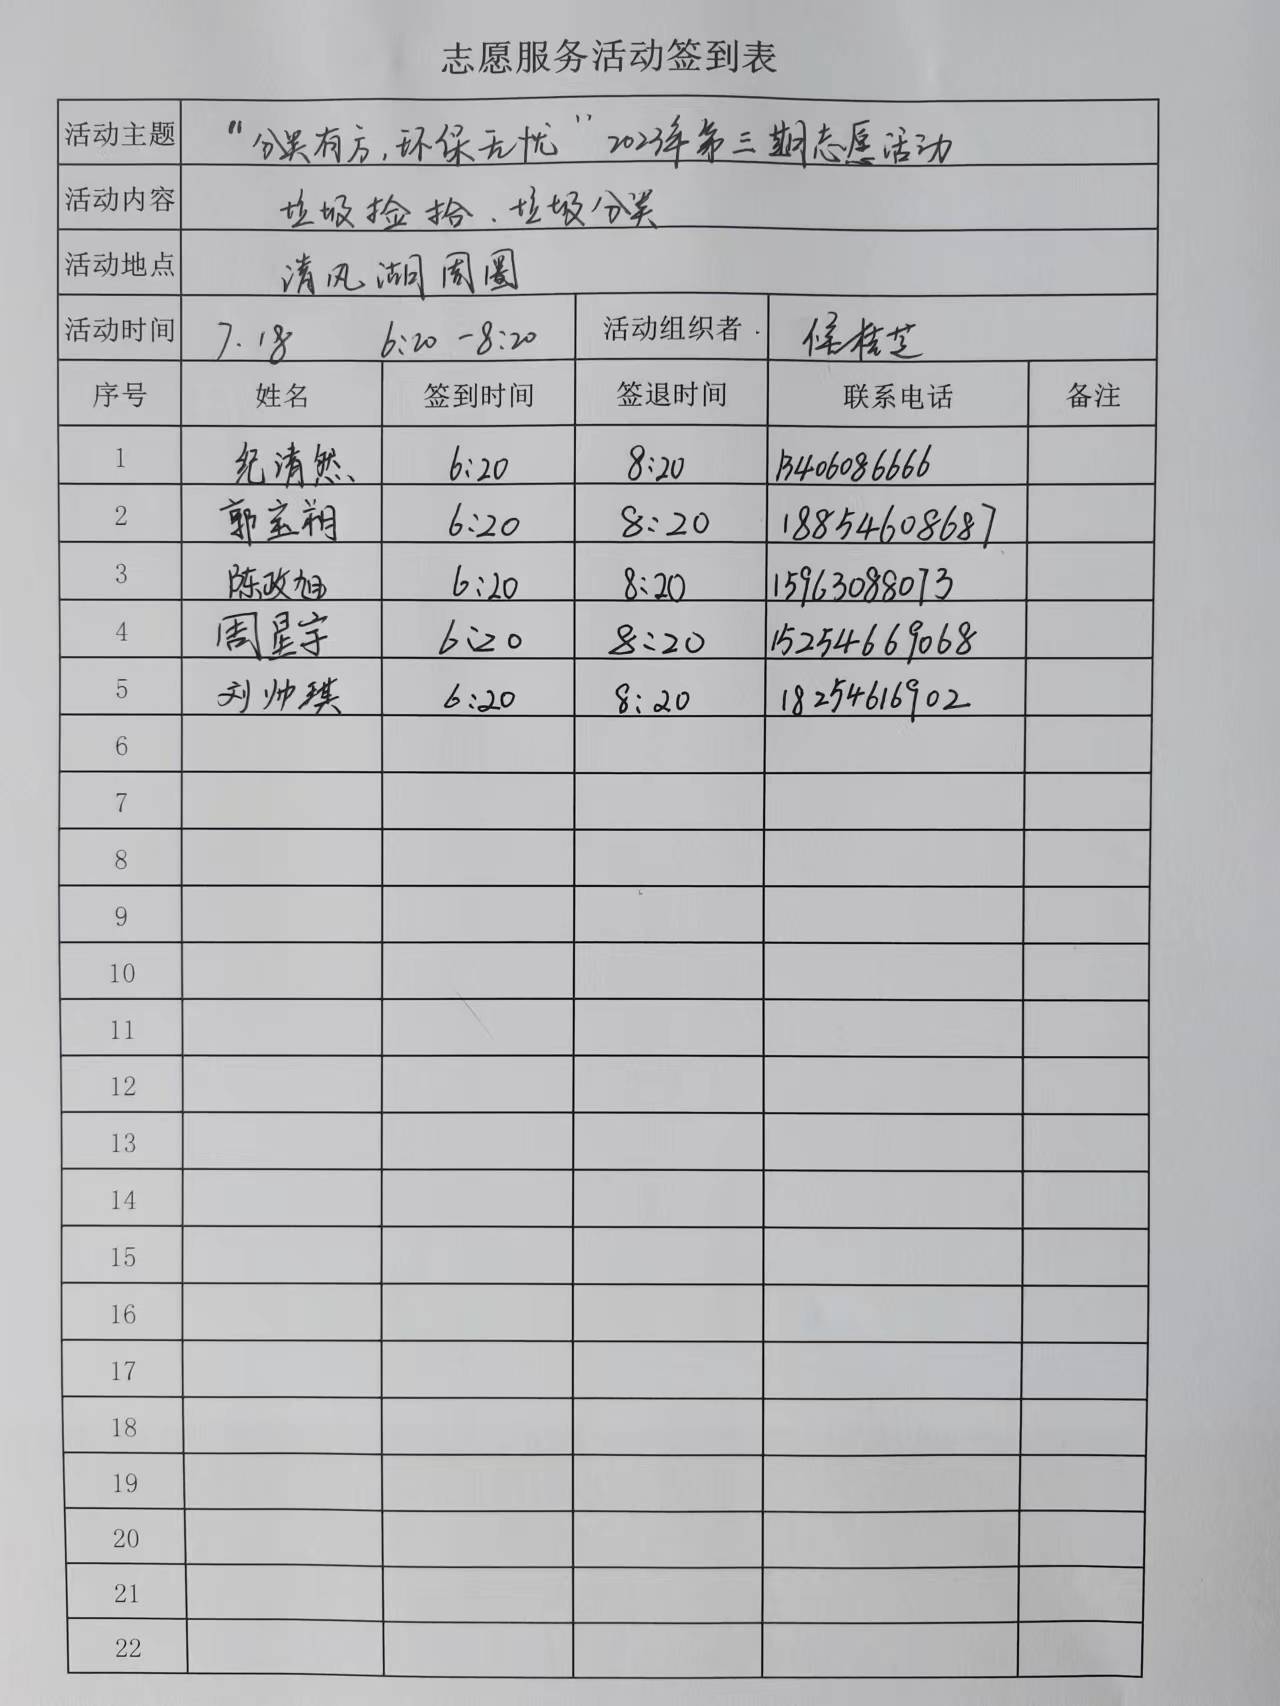 志愿服务活动签到表
活动主题 “分类有方,环保无忧” 2023年第三期志愿活动
活动内容 垃圾捡拾、垃圾分类
活动地点 清风湖周圈
活动时间 7.18 6:20-8:20 活动组织者 侯桂芝
序号 姓名 签到时间 签退时间 联系电话 备注
1 纪清然 6:20 8:20 13406086666
2 郭宝翔 6:20 8:20 18854608687
3 陈政旭 6:20 8:20 15963088073
4 周星宇 6:20 8:20 15254669068
5 刘帅琪 6:20 8:20 18254616902
6
7
8
9
10
11
12
13
14
15
16
17
18
19
20
21
22